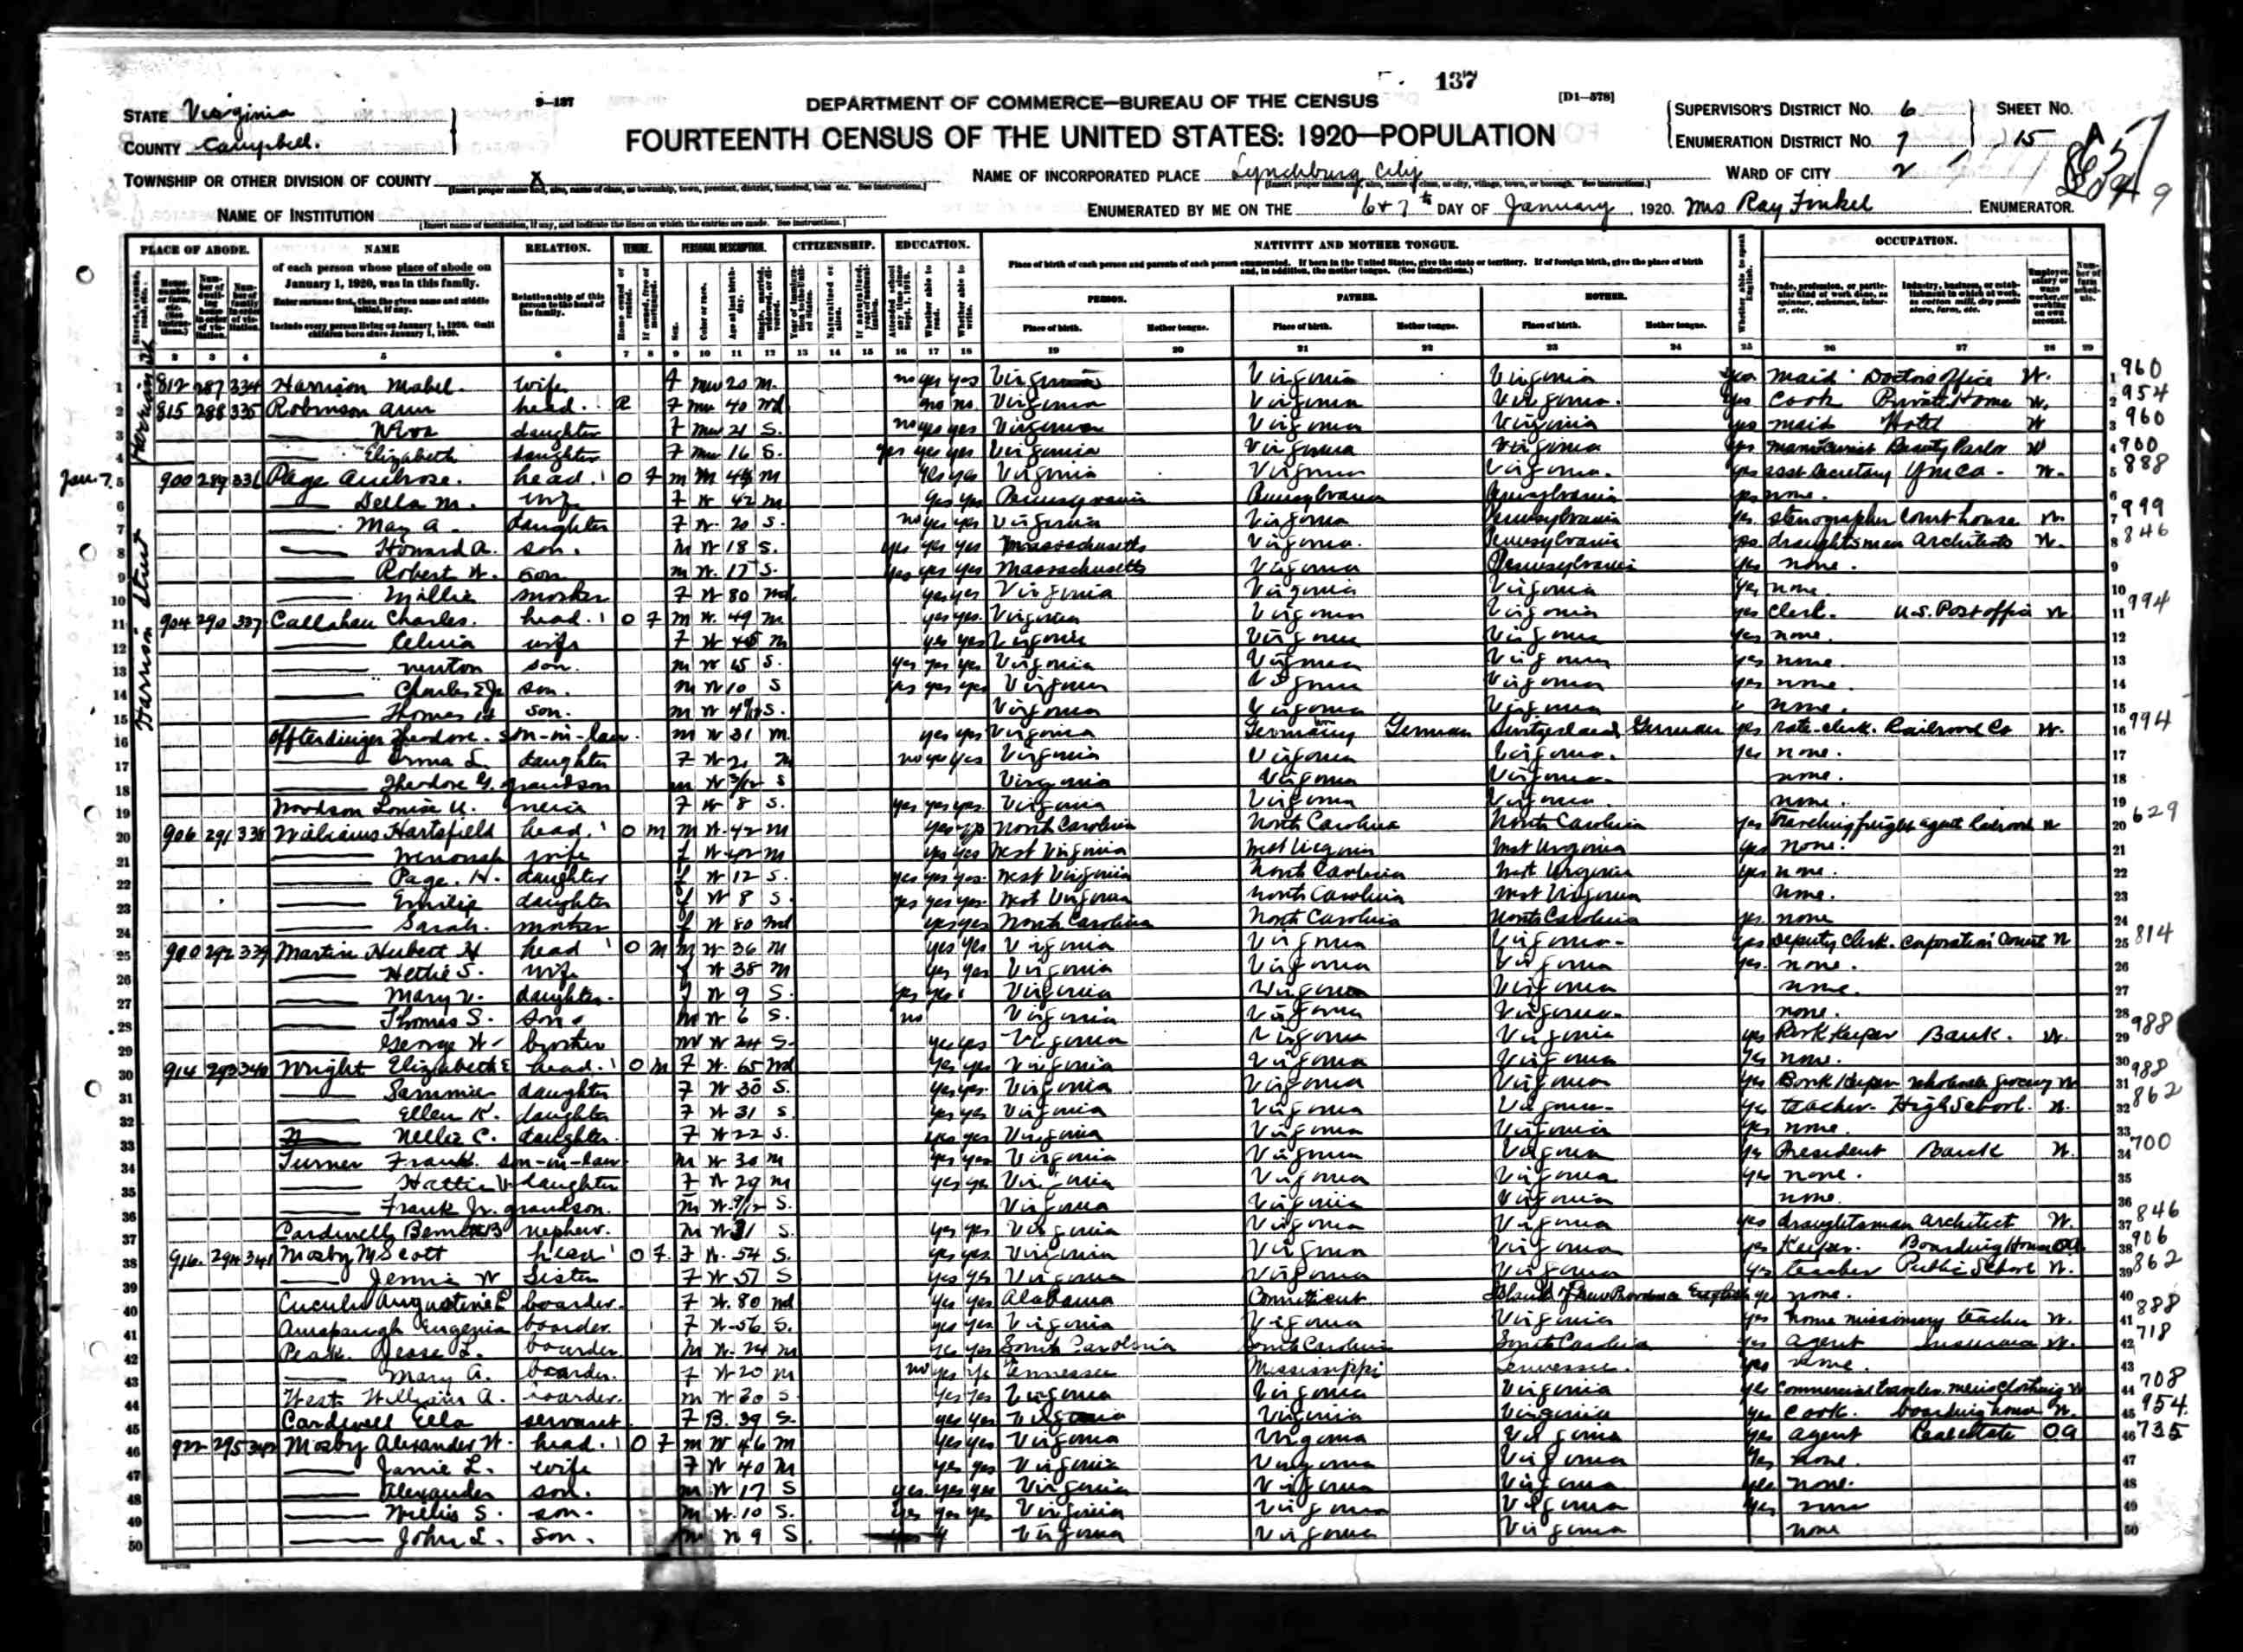 137
STATE Virginia
9-137
DEPARTMENT OF COMMERCE—BUREAU OF THE CENSUS
[D1-578]
SUPERVISOR'S DISTRICT No. 6 SHEET No.
COUNTY Campbell.
FOURTEENTH CENSUS OF THE UNITED STATES: 1920—POPULATION
ENUMERATION DISTRICT No. 7 15 A
TOWNSHIP OR OTHER DIVISION OF COUNTY X
NAME OF INCORPORATED PLACE Lynchburg City
WARD OF CITY 2
NAME OF INSTITUTION
ENUMERATED BY ME ON THE 6+7th DAY OF January, 1920. Mrs Ray Finkel ENUMERATOR.
PLACE OF ABODE. NAME RELATION. TENURE. PERSONAL DESCRIPTION. CITIZENSHIP. EDUCATION. NATIVITY AND MOTHER TONGUE. OCCUPATION.
of each person whose place of abode on January 1, 1920, was in this family.
Enter surname first, then the given name and middle initial, if any.
Include every person living on January 1, 1920. Omit children born since January 1, 1920.
Relationship of this person to the head of the family.
Place of birth of each person and parents of each person enumerated. If born in the United States, give the state or territory. If of foreign birth, give the place of birth and, in addition, the mother tongue. (See Instructions.)
PERSON. FATHER. MOTHER.
Place of birth. Mother tongue. Place of birth. Mother tongue. Place of birth. Mother tongue.
2 3 4 5 6 7 8 9 10 11 12 13 14 15 16 17 18 19 20 21 22 23 24 25 26 27 28 29
Harrison Street
1 812 287 334 Harrison Mabel. wife F mu 20 m. no yes yes Virginia Virginia Virginia yes maid Doctors office W. 960
2 815 288 335 Robinson Ann head. R F mu 40 wd no no. Virginia Virginia Virginia. yes cook Private Home W. 954
3 daughter F mu 21 S. no yes yes Virginia Virginia Virginia yes maid Hotel W 960
4 Elizabeth daughter F mu 16 S. yes yes yes Virginia Virginia Virginia yes manicurist Beauty Parlor W 900
Jan. 7. 5 900 289 336 Page Ambrose. head. 1 O F m m Yes yes Virginia Virginia Virginia. yes asst Secretary Ymca. W. 888
6 Della M. wife F W 42 m yes yes Pennsylvania Pennsylvania Pennsylvania yes none.
7 May A. daughter F W. 20 S. no yes yes Virginia Virginia Pennsylvania yes stenographer Courthouse W. 999
8 Howard A. son. m W 18 S. yes yes yes Massachusetts Virginia. Pennsylvania yes draughtsman Architects W. 846
9 Robert W. son m W. 17 S. yes yes yes Massachusetts Virginia Pennsylvania yes none.
10 Millie mother F W 80 wd. yes yes Virginia Virginia Virginia yes none.
11 904 290 337 Callahan Charles. head. 1 O F m W. 49 m yes yes. Virginia Virginia Virginia yes Clerk. U.S. Post office W 994
12 wife F W 45 m yes yes Virginia Virginia Virginia yes none.
13 Newton son. m W 15 S. yes yes yes Virginia Virginia Virginia yes none.
14 Charles E Jr son. m W 10 S yes yes yes Virginia Virginia Virginia yes none.
15 Thomas H son. m W S. Virginia Virginia Virginia none.
16 Offterdinger Theodore. son-in-law. m W 31 m. yes yes Virginia Germany German Switzerland German yes rate-clerk. Railroad Co W. 994
17 Erma L. daughter F W m no yes yes Virginia Virginia Virginia. yes none.
18 Theodore G. grandson m W 3/12 S Virginia Virginia Virginia. none.
19 Woodson Louise U. neice F W 8 S. yes yes yes. Virginia Virginia Virginia. none.
20 906 291 338 Williams Hartsfield head. 1 O m m W. 42 m yes yes North Carolina North Carolina North Carolina yes traveling freight agent Railroad W 629
21 Wenonah wife f W 42 m yes yes West Virginia West Virginia West Virginia yes none.
22 Page. H. daughter f W 12 S. yes yes yes. West Virginia North Carolina West Virginia yes none.
23 Emilie daughter f W 8 S. yes yes yes. West Virginia North Carolina West Virginia none.
24 Sarah. mother f W 80 wd yes yes North Carolina North Carolina North Carolina yes. none
25 292 339 Martin Hubert H head 1 O m m W 36 m yes yes Virginia Virginia Virginia. yes Deputy Clerk. Corporation Court W 814
26 Nettie S. wife f W 38 m yes yes Virginia Virginia Virginia yes. none.
27 Mary V. daughter. f W 9 S. yes yes Virginia Virginia Virginia none.
28 Thomas S. son. m W 6 S. no Virginia Virginia Virginia. none.
29 George W. brother m W 24 S. yes yes Virginia Virginia Virginia yes Book keeper Bank. W. 988
30 914 293 340 Wright Elizabeth E head. 1 O m F W. 65 wd yes yes Virginia Virginia Virginia yes none.
31 Sammie daughter F W 35 S. yes yes. Virginia Virginia Virginia yes Book keeper wholesale grocery W 988
32 Ellen K. daughter F W 31 S. yes yes Virginia Virginia Virginia. yes teacher. High School. W. 862
33 Nellie C. daughter. F W 22 S. yes yes Virginia Virginia Virginia yes none.
34 Turner Frank. son-in-law. m W 30 m yes yes Virginia Virginia Virginia yes President Bank W. 700
35 Hattie V. daughter F W 29 m yes yes Virginia Virginia Virginia yes none.
36 Frank Jr. grandson. m W. 9/12 S. Virginia Virginia Virginia none.
37 Cardwell nephew. m W 31 S. yes yes Virginia Virginia Virginia yes draughtsman architect W. 846
38 916. 294 341 Mosby M. Scott head 1 O F. F W. 54 S. yes yes. Virginia Virginia Virginia yes Keeper. Boarding House OA. 906
39 Jennie W Sister F W 57 S yes yes Virginia Virginia Virginia yes teacher Public School W. 862
40 Augustine E boarder. F W. 80 wd yes yes Alabama Connecticut Island of New Providence English yes none.
41 Eugenia boarder. F W 56 S. yes yes Virginia Virginia Virginia yes home missionary teacher W. 888
42 Peak. Jesse L. boarder. m W. 24 m yes yes South Carolina South Carolina South Carolina yes agent Insurance W. 718
43 Mary A. boarder. F W 20 m no yes yes Tennessee Mississippi Tennessee. yes none.
44 West William A. boarder. m W 30 S yes yes Virginia Virginia Virginia yes commercial traveler. mens clothing W 708
45 Cardwell Ella servant. F B. 39 S. yes yes Virginia Virginia Virginia yes cook. boarding house W. 954
46 922 295 342 Mosby Alexander W. head. 1 O F m W 46 m yes yes Virginia Virginia Virginia yes agent Real estate OA 735
47 Janie L. wife F W 40 m yes yes Virginia Virginia Virginia yes none.
48 Alexander son. m W 17 S yes yes yes Virginia Virginia Virginia yes none.
49 Willis S. son. m W. 10 S. yes yes yes Virginia Virginia Virginia yes none
50 John L. son. m W 9 S. Virginia Virginia Virginia none